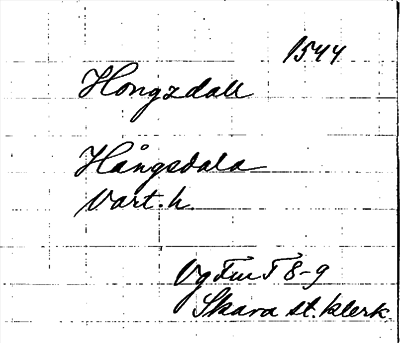 1544
Hongzdall
Hångsdala
Vart. h.
Vg Fui T 8-9
Skara st. klerk.